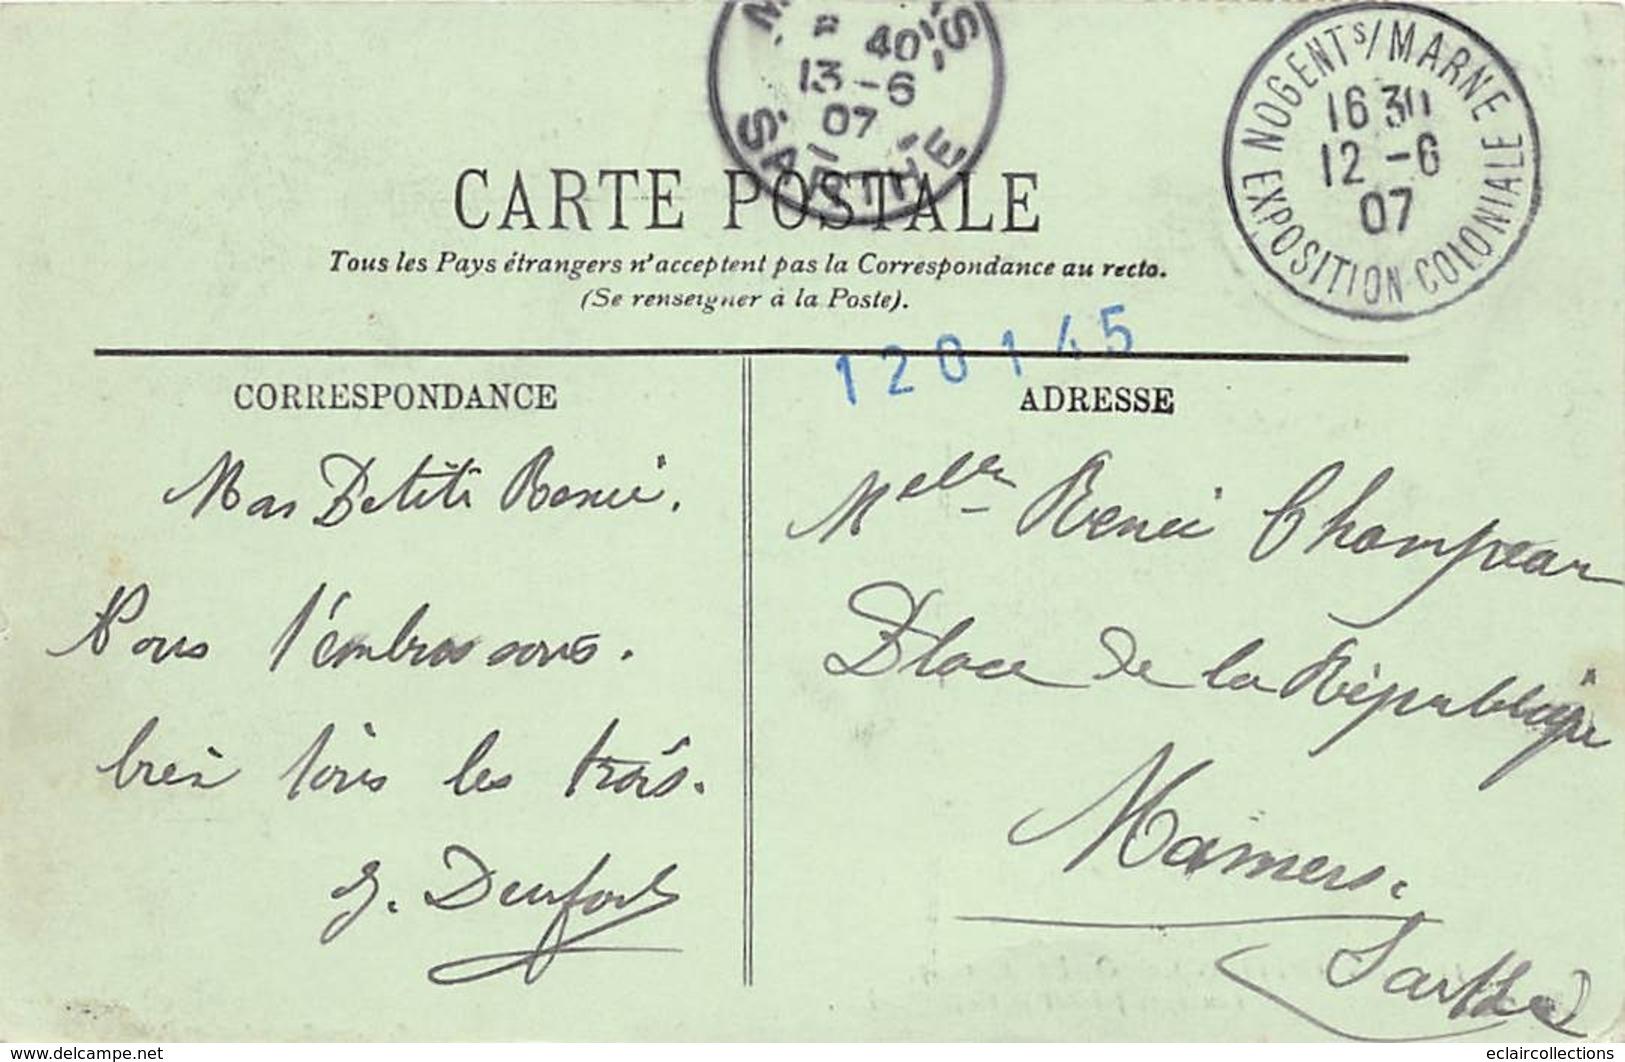 MAMERS
* 40
13 - 6
07
SARTHE
NOGENT S/MARNE
16 30
12 - 6
07
EXPOSITION COLONIALE
CARTE POSTALE
Tous les Pays étrangers n'acceptent pas la Correspondance au recto.
(Se renseigner à la Poste).
120145
CORRESPONDANCE
ADRESSE
Ma Petite Renée.
Nous t'embrassons.
bien tous les trois.
Melle Renée Champeau
Place de la République
Mamers.
Sarthe
www.delcampe.net
eclaircollections